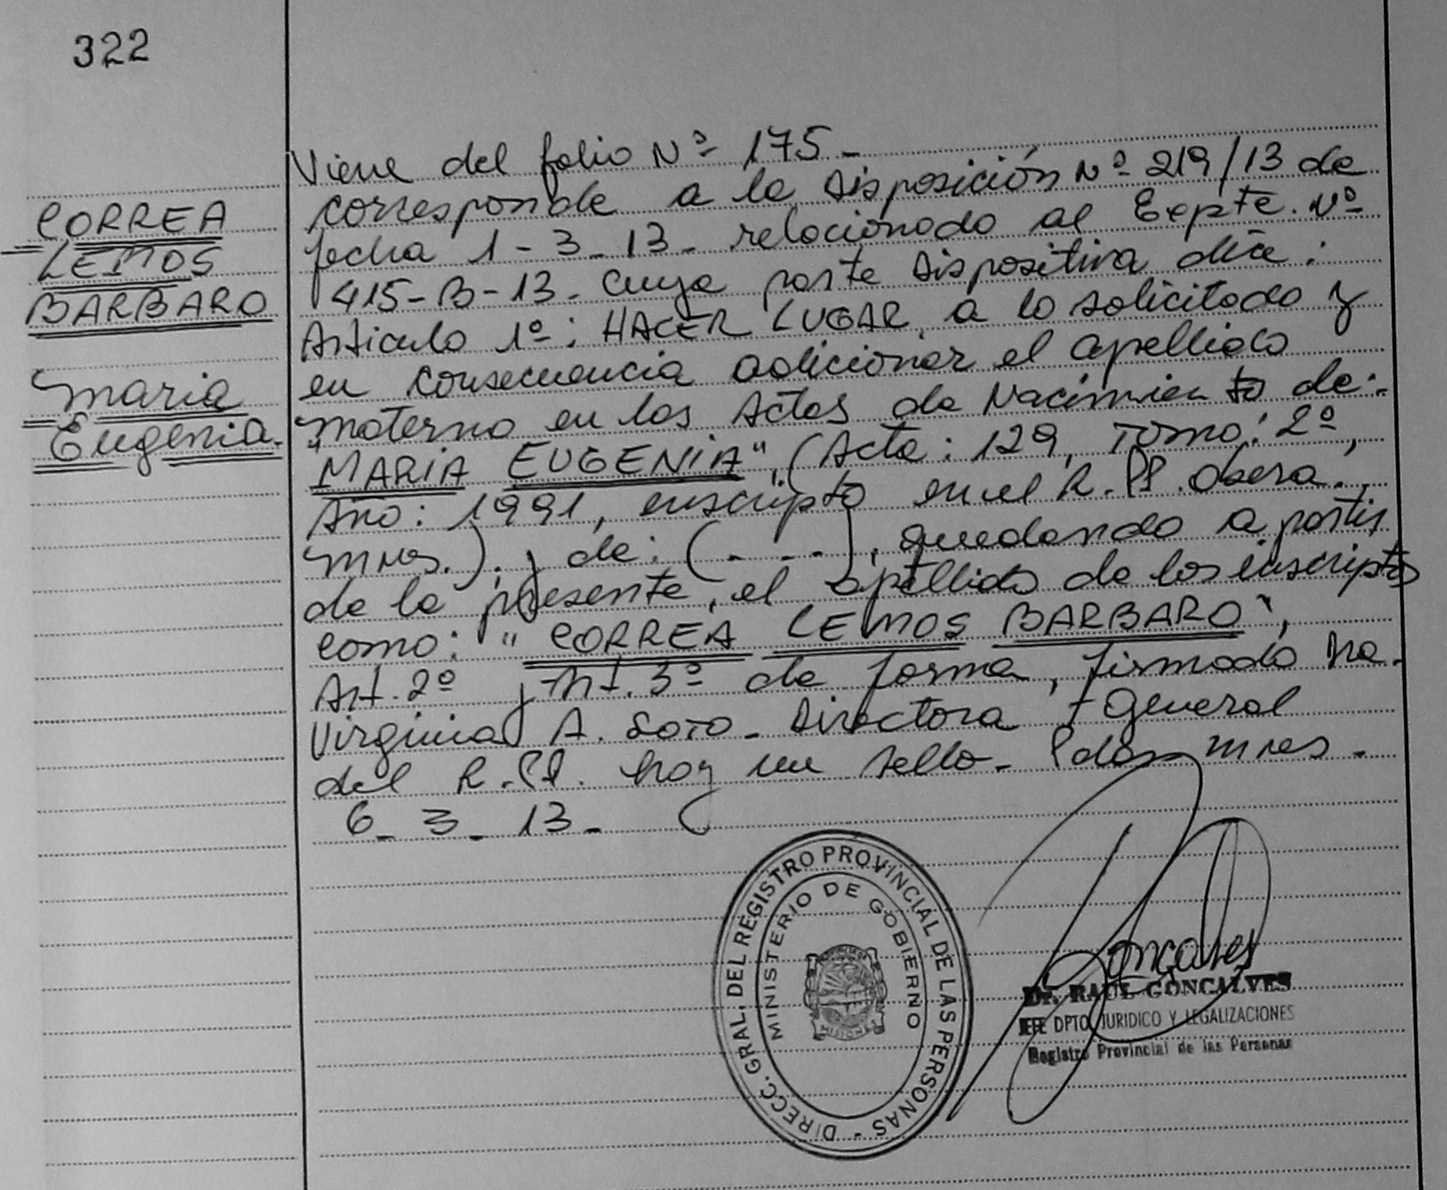 322
CORREA
LEMOS
BARBARO
Maria
Eugenia.
Viene del folio Nº 175 -
corresponde a la Disposición Nº 219/13 de
fecha 1-3-13- relacionado al Expte. Nº
415-B-13- cuya parte Dispositiva dice:
Articulo 1º: HACER LUGAR, a lo solicitado y
en consecuencia adicionar el apellido
materno en las Actas de Nacimiento de:
"MARIA EUGENIA", (Acta: 129, Tomo: 2º,
Año: 1991, inscripto en el R.P. Obera.
Mnes.). y de: (....), quedando a partir
de la presente, el apellido de los inscriptos
como: "CORREA LEMOS BARBARO",
Art. 2º y Art. 3º de forma, firmado
Virginia A. SOTO - Directora General
del R.P. hay un sello - Pdas Mnes.
6-3-13-
DIRECC. GRAL. DEL REGISTRO PROVINCIAL DE LAS PERSONAS -
MINISTERIO DE GOBIERNO
MISIONES
Goncalves
Dr. RAUL GONCALVES
JEFE DPTO. JURIDICO Y LEGALIZACIONES
Registro Provincial de las Personas